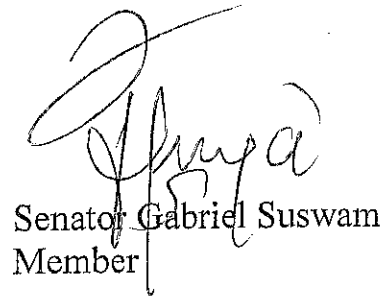 Senator Gabriel Suswam
Member